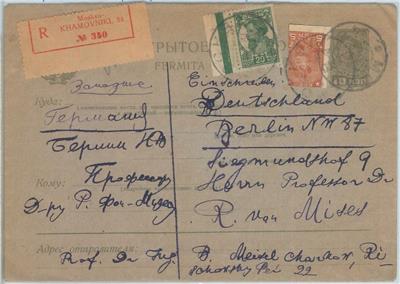 Moskau-
KHAMOVNIKI, 34
R № 350
ОТКРЫТОЕ
FERMITA
Заказное
Einschreiben
Куда:
Германия
Берлин NW
Кому: Профессору
Д-ру Р. фон-Мизес
Deutschland
Berlin NW 87
Siegmundshof 9
Herrn Professor Dr
R. von Mises
Адрес отправителя:
Prof. Dr Ing. B. Meisel Charkow,
22